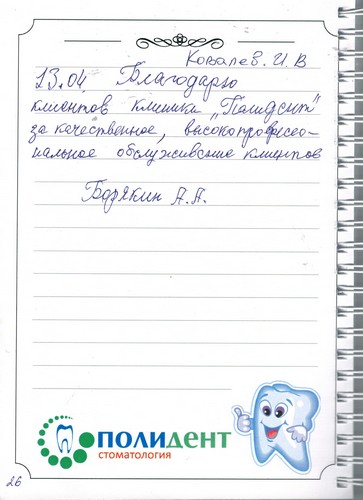 Ковалев. И. В
13.04 Благодарю
клиентов клиники „Полидент"
за качественное, высокопрофессио-
нальное обслуживание клиентов
Бодякин А.А.
ПОЛИДЕНТ
СТОМАТОЛОГИЯ
26